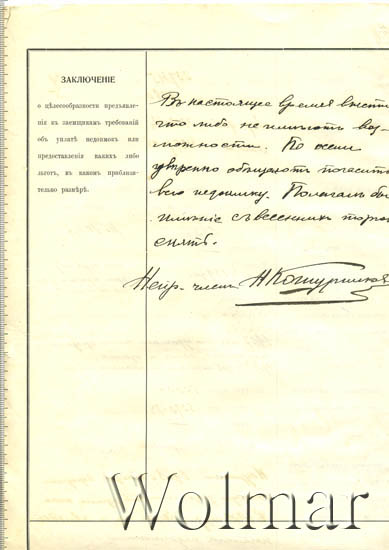 ЗАКЛЮЧЕНІЕ
о цѣлесообразности предъявле-
нія къ заемщикамъ требованій
объ уплатѣ недоимокъ или
предоставленія какихъ либо
льготъ, въ какомъ приблизи-
тельно размѣрѣ.
Въ настоящее время внести
что либо не имѣютъ воз-
можности. По осени
увѣренно обѣщаютъ погасить
всю недоимку. Полагалъ бы
имѣніе съ весеннихъ торговъ
снять.
Непр. членъ
Wolmar